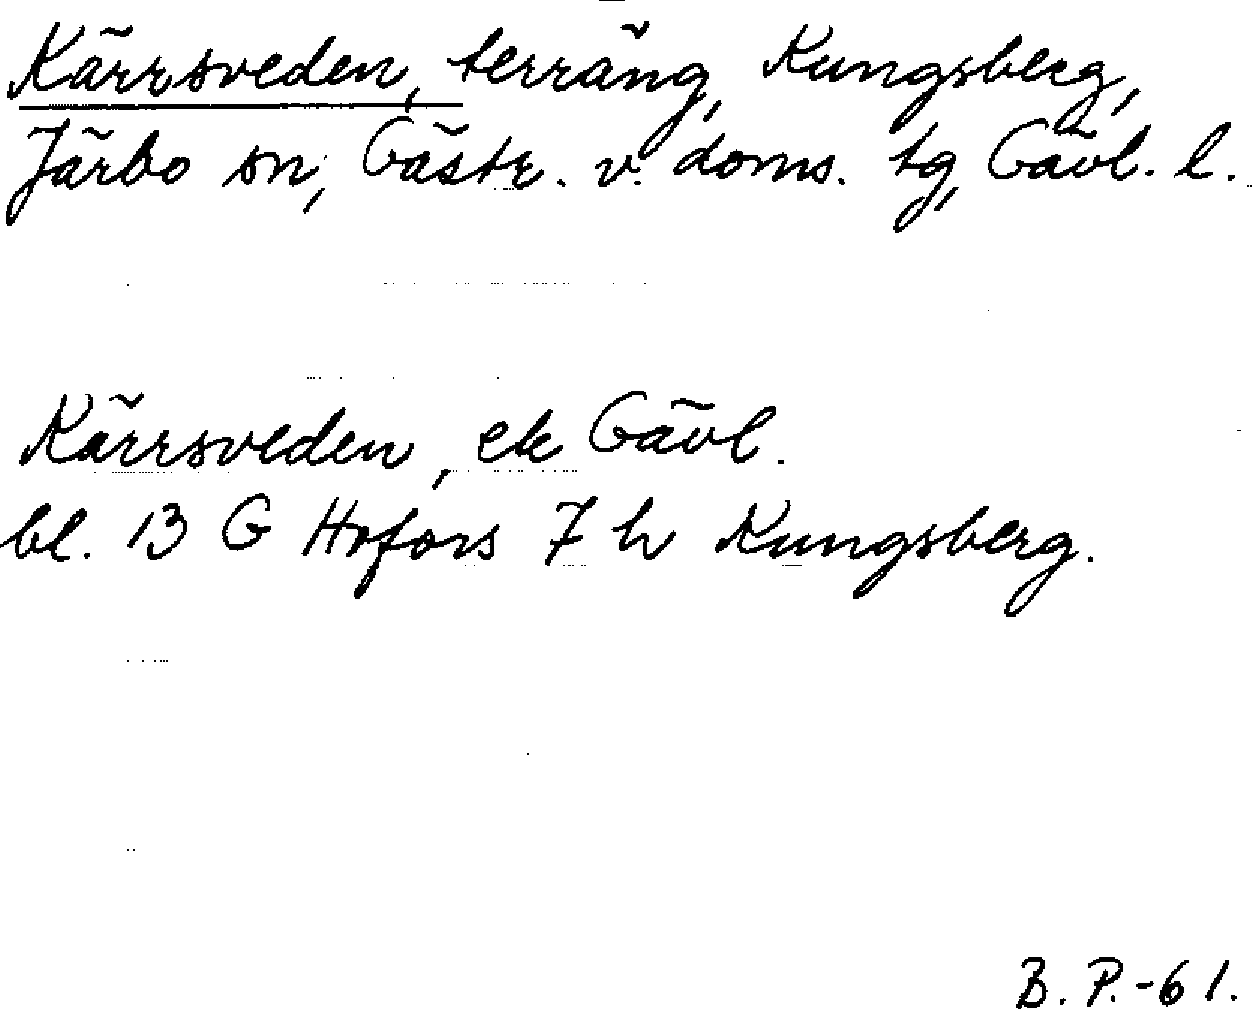 Kärrsveden, terräng, Kungsberg,
Järbo sn, Gästr. v. doms. tg, Gävl. l.
Kärrsveden, ek Gävl.
bl. 13 G Hofors 7 h Kungsberg.
B. P. -61.